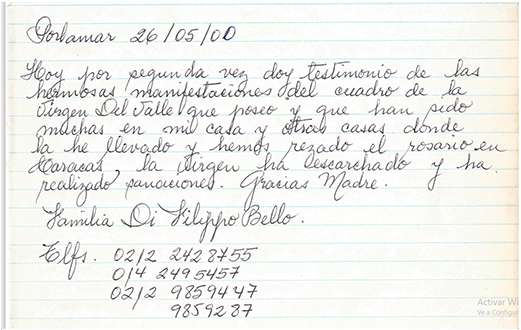 Porlamar 26/05/00
Hoy por segunda vez doy testimonio de las
hermosas manifestaciones del cuadro de la
Virgen Del Valle que poseo y que han sido
muchas en mi casa y otras casas donde
la he llevado y hemos rezado el rosario en
Caracas, la Virgen ha escarchado y ha
realizado sanaciones. Gracias Madre.
Familia Di Filippo Bello.
Tlfs. 0212 2428755
014 2495457
0212 9859447
9859287
Activar Wi
Ve a Configu